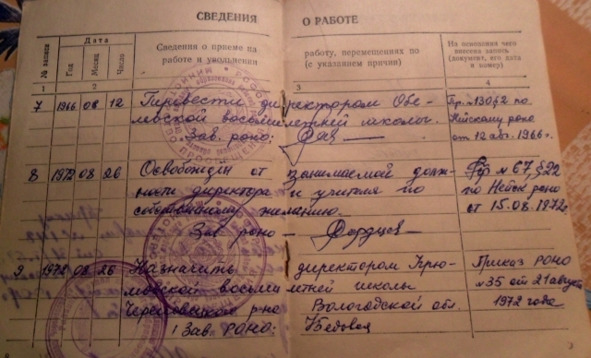 СВЕДЕНИЯ О РАБОТЕ
№ записи
Дата
Год
Месяц
Число
Сведения о приеме на работу, перемещениях по
работе и увольнении (с указанием причин)
На основании чего
внесена запись
(документ, его дата
и номер)
1 2 3 4
7 1966 08 12 Перевести директором Обе-
левской восьмилетней школы.
Зав. роно:
Пр. №130§2 по
Нейскому роно
от 12 авг. 1966г.
8 1972 08 26 Освобожден от занимаемой долж-
ности директора и учителя по
собственному желанию.
Зав. роно
Пр № 67, §22
по Нейск роно
от 15.08.1972г
9 1972 08 26 Назначить директором Крю-
мовской восьмилетней школы
Череповецкого рно Вологодской обл.
Зав. РОНО:
Приказ РОНО
№35 от 21 августа
1972 года
3